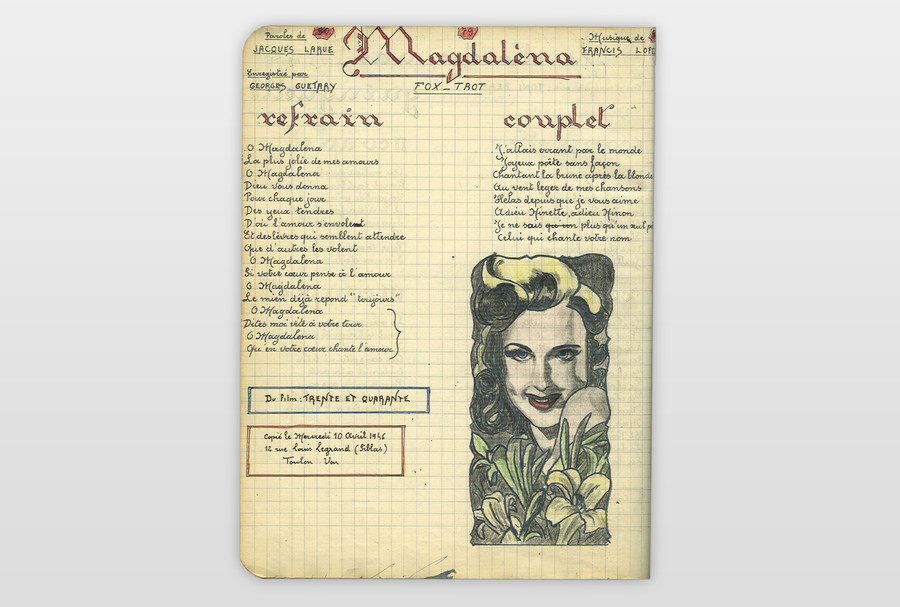 Paroles de
JACQUES LARUE
Magdaléna
Musique de
FRANCIS LOP
Enregistré par
GEORGES GUETARY
FOX_TROT
refrain
O Magdaléna
La plus jolie de mes amours
O Magdaléna
Dieu vous donna
Pour chaque jour
Des yeux tendres
D'où l'amour s'envolent
Et des lèvres qui semblent attendre
Que d'autres les volent
O Magdaléna
Si votre cœur pense à l'amour
O Magdaléna
Le mien déjà répond "toujours"
O Magdaléna
Dites moi vite à votre tour
O Magdaléna
Qu'en votre cœur chante l'amour
couplet
J'allais errant par le monde
Joyeux poète sans façon
Chantant la brune après la blonde
Au vent leger de mes chansons
Hélas depuis que je vous aime
Adieu Ninette, adieu Ninon
Je ne sais qu'un plus qu'un seul po
Celui qui chante votre nom
Du Film : TRENTE ET QUARANTE
Copié le Mercredi 10 Avril 1946
12 rue Louis Legrand (Siblas)
Toulon Var